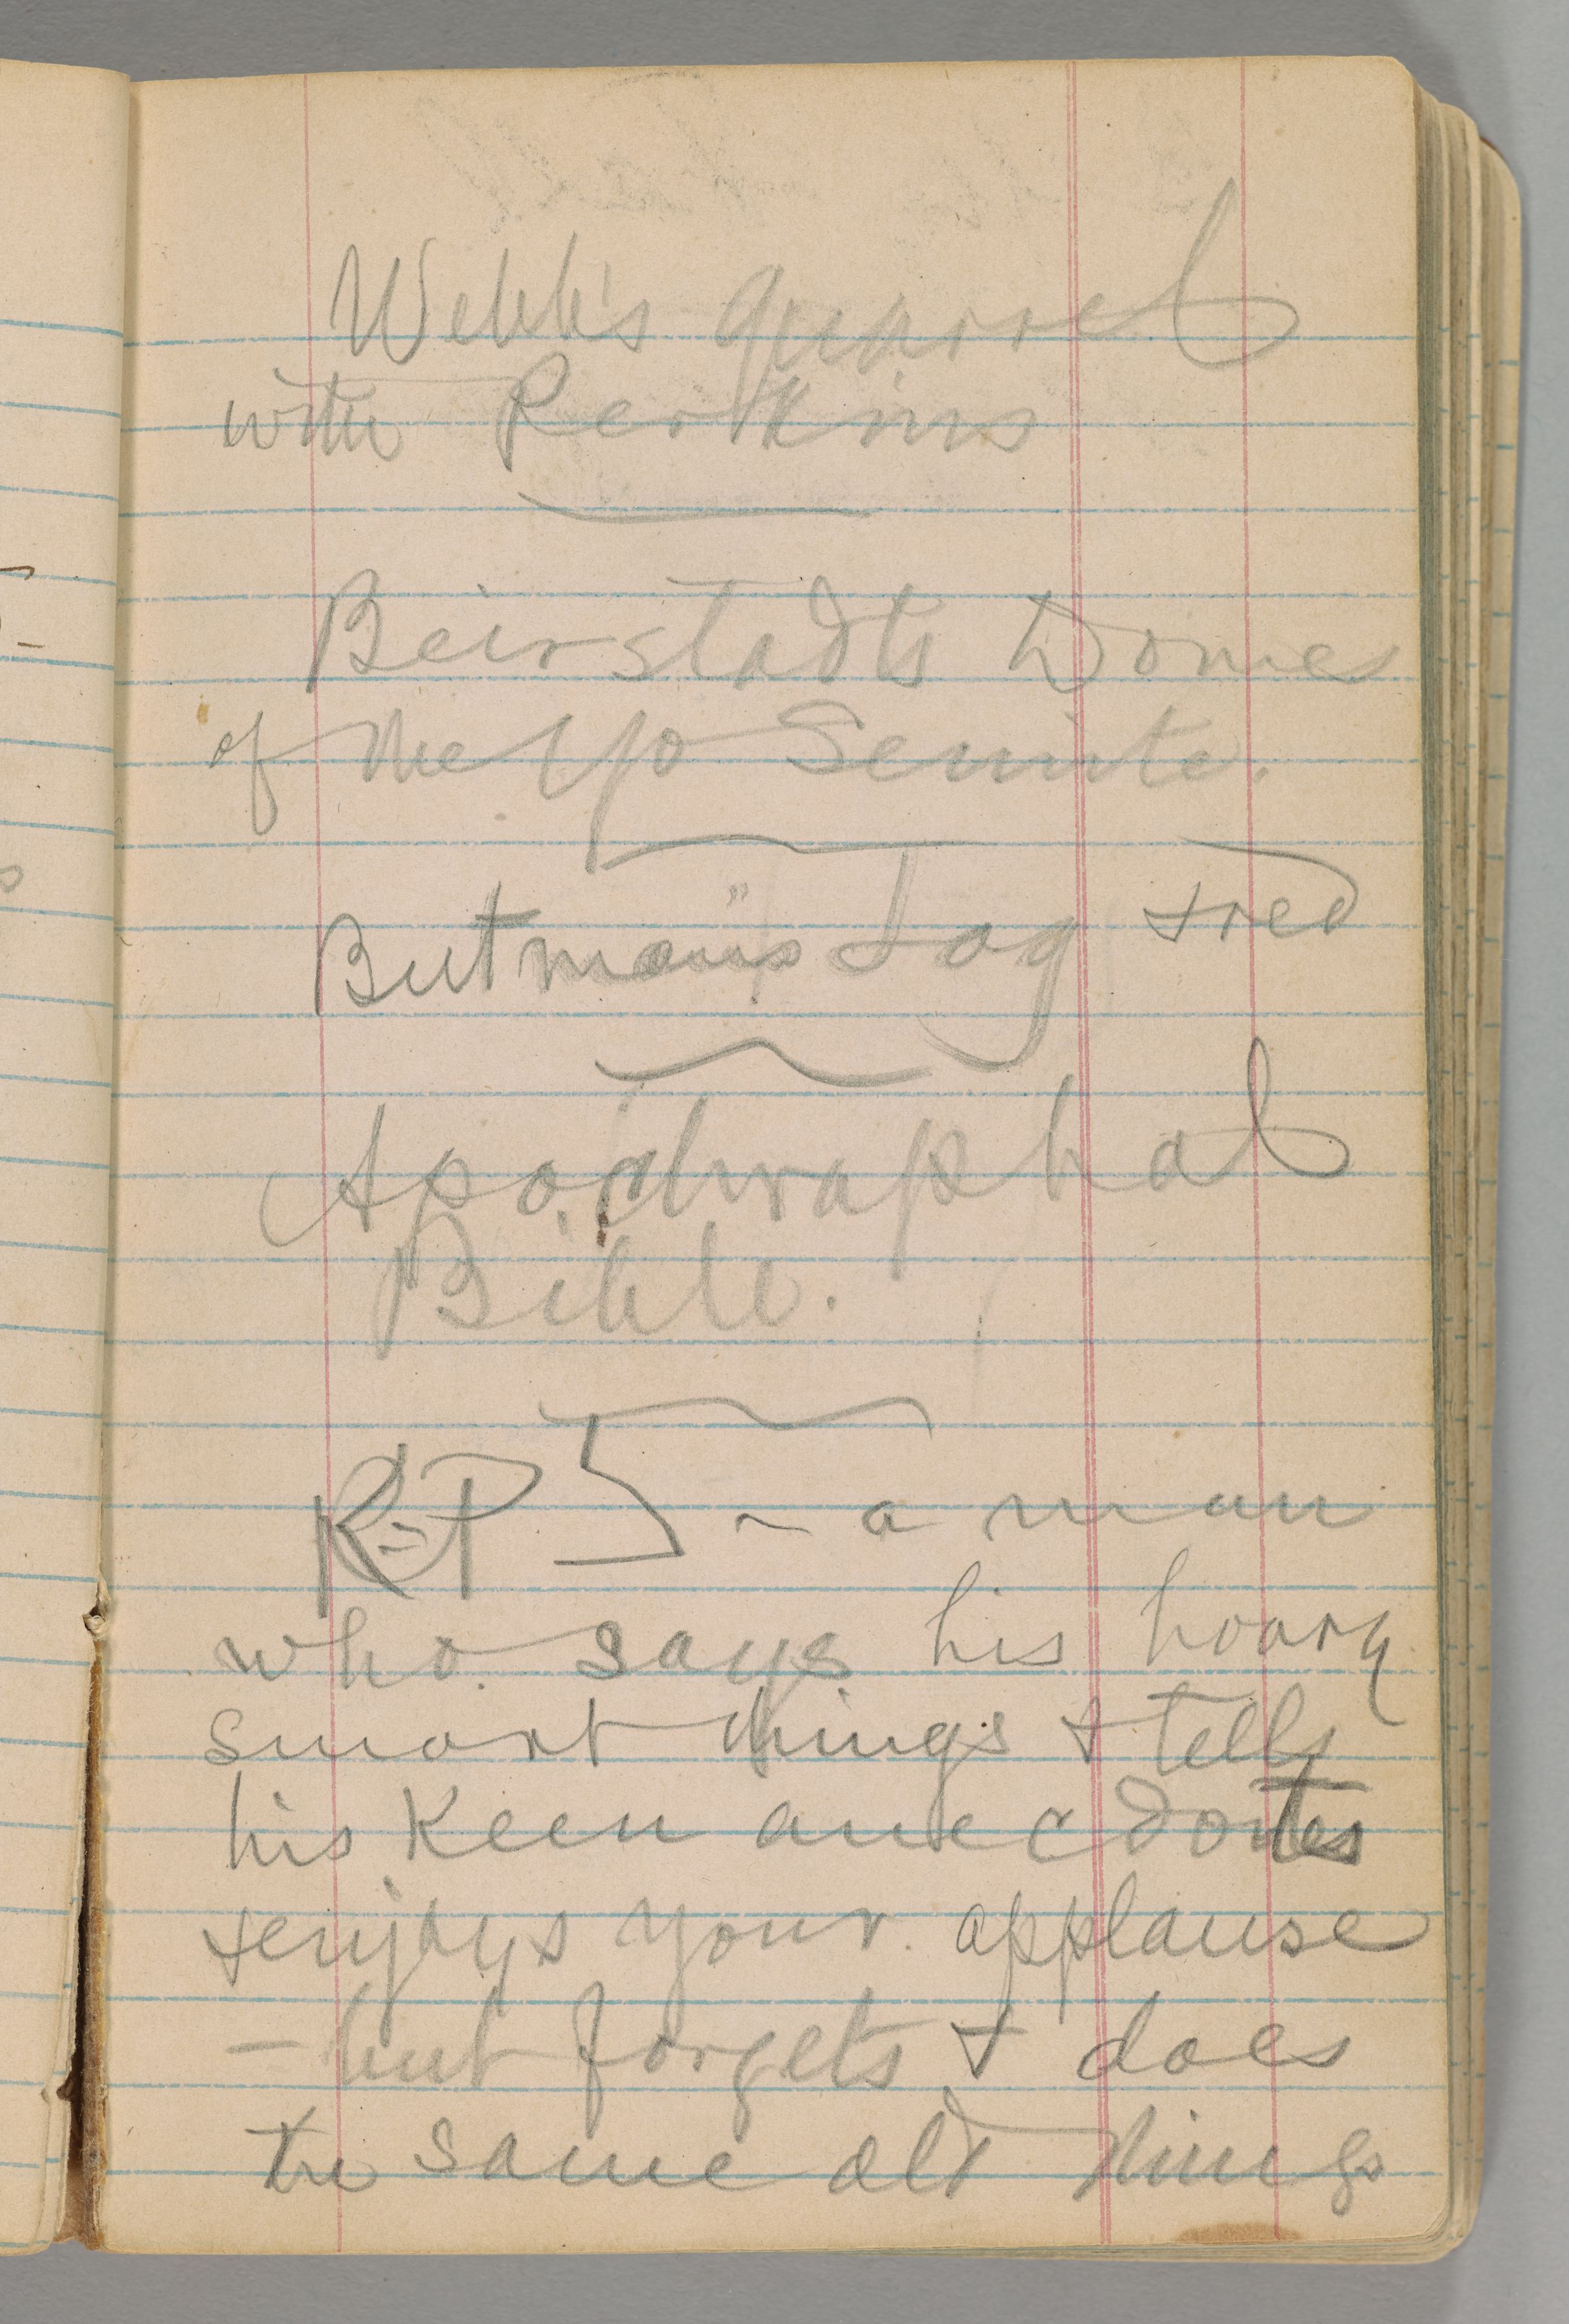 Webb's quarrel
with Perkins
Beirstadts Domes
of the Yo Semite.
Butman's Dog
Apochraphal
Bible.
R-P 5 - a man
who says his hoary
smart things & tells
his Keen anecdotes
& enjoys your applause
— but forgets & does
the same old things